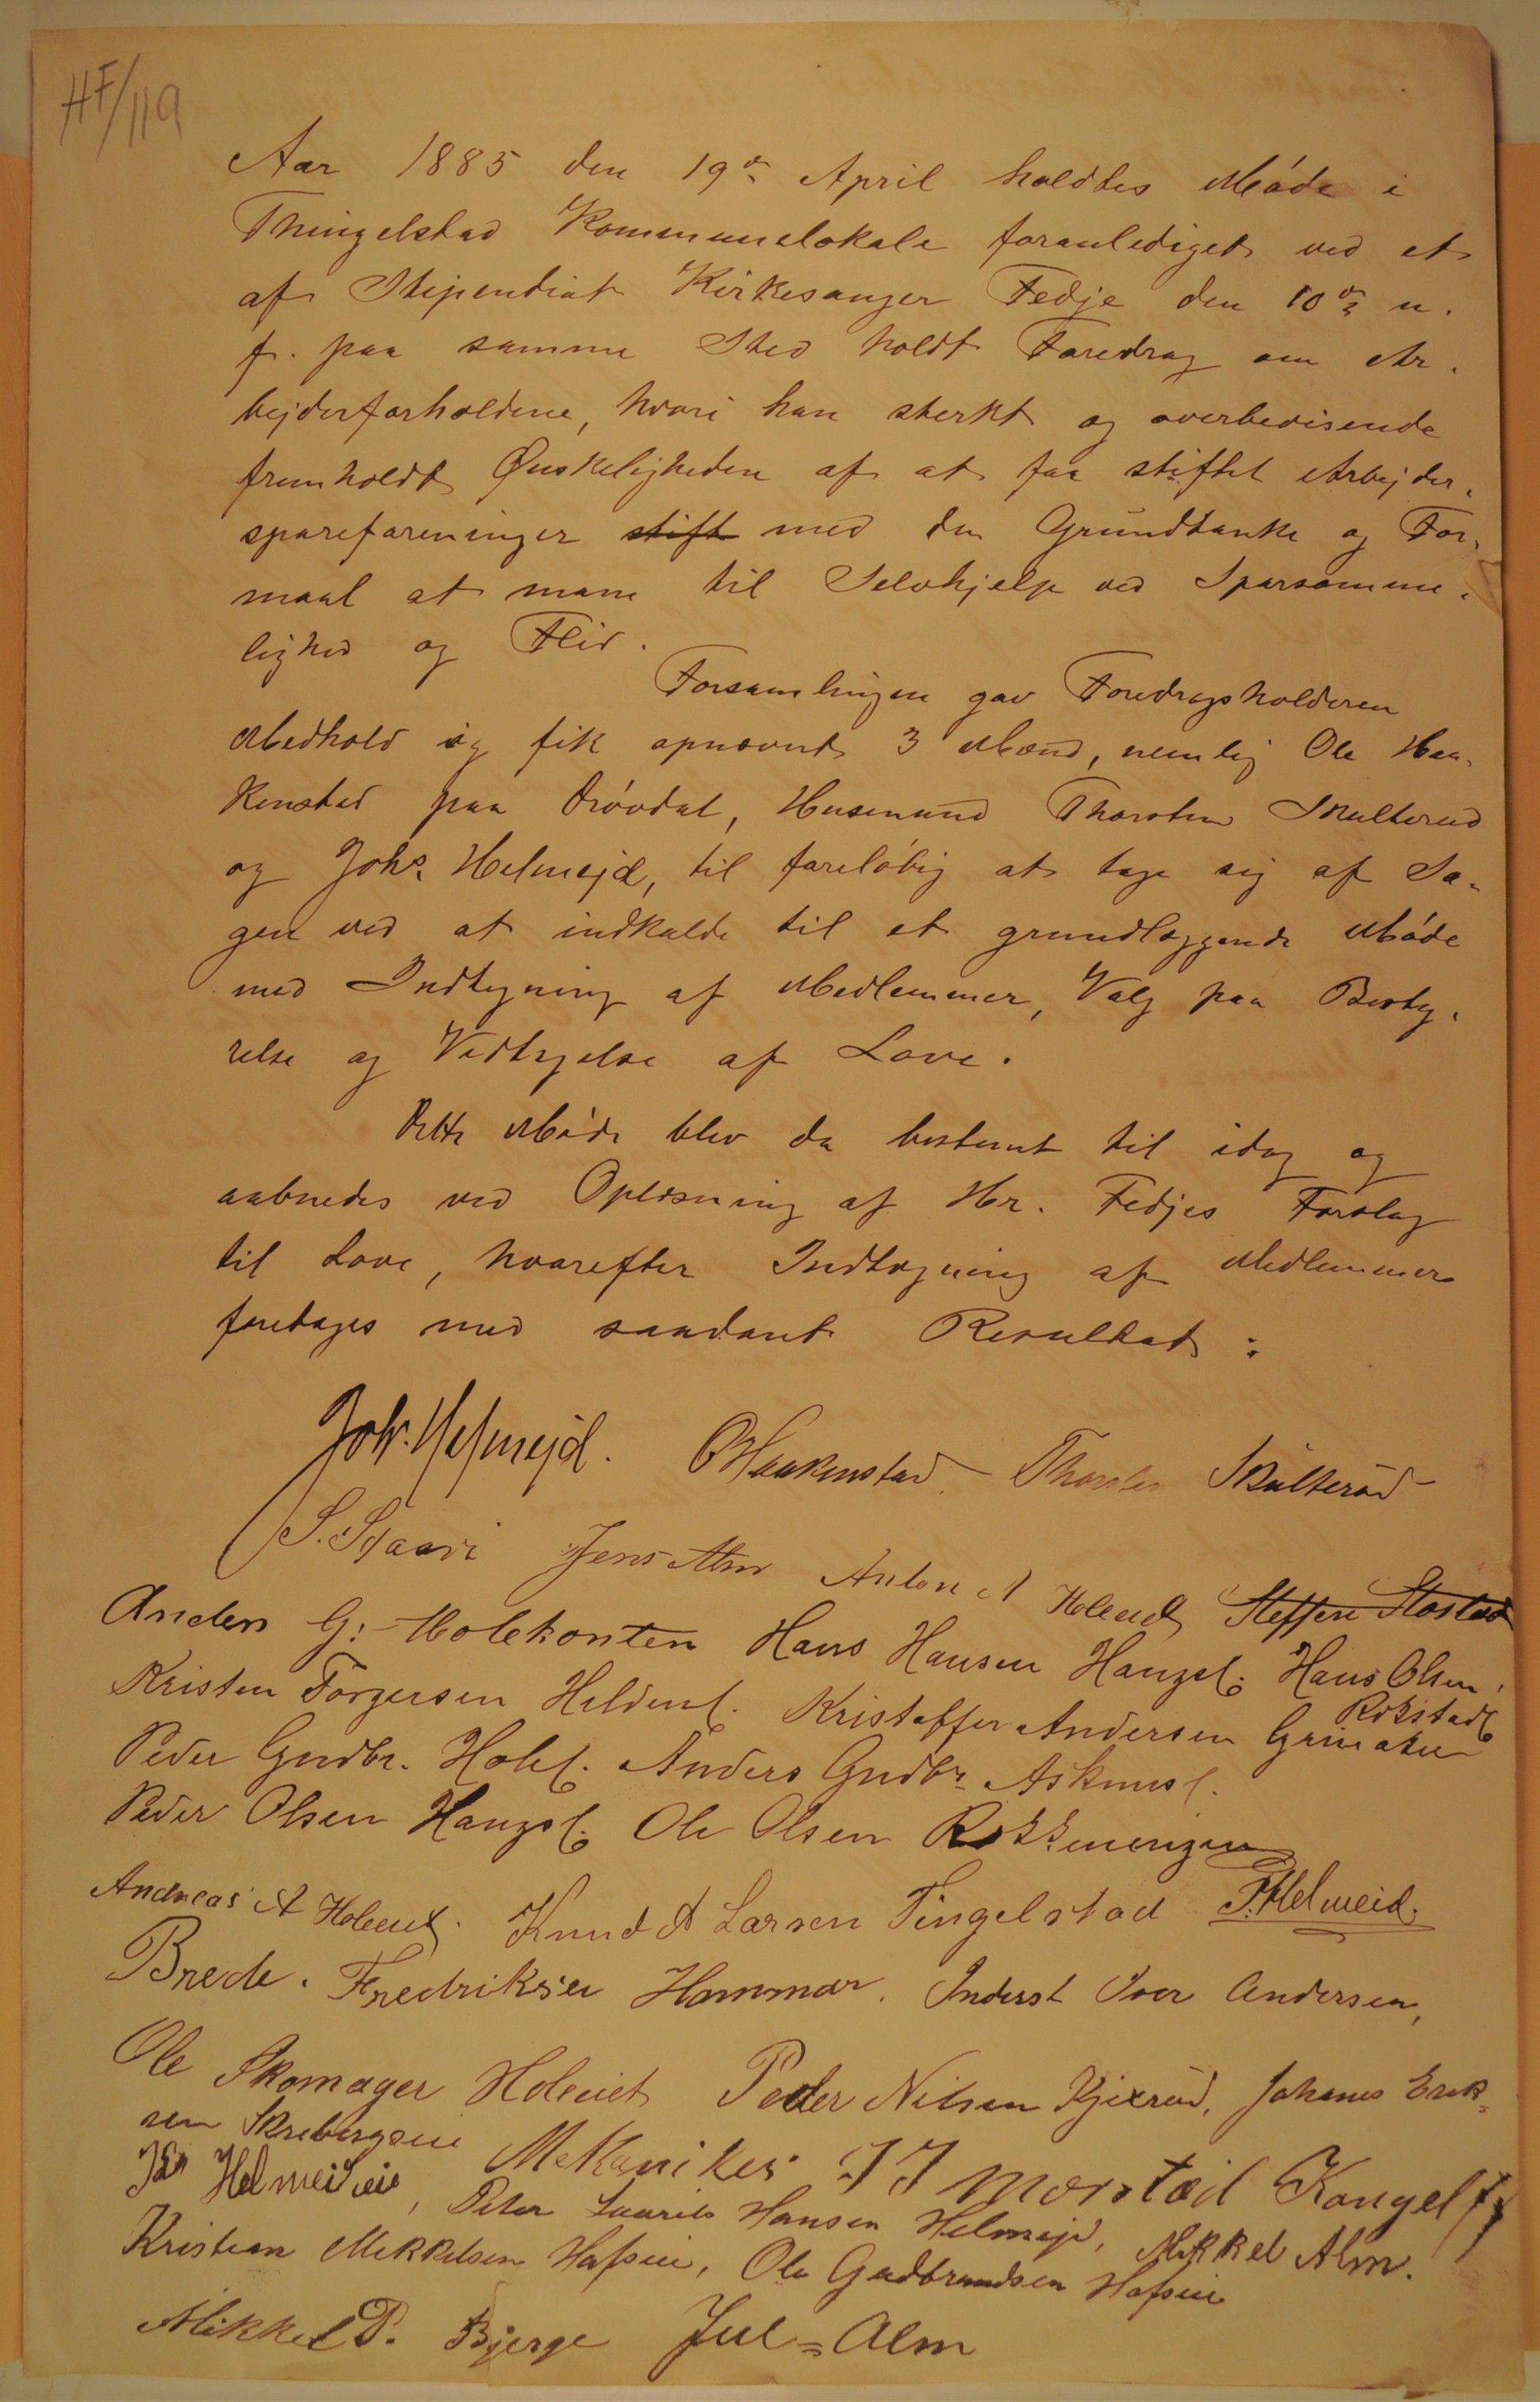 HF/119
Aar 1885 den 19de April holdtes Møde i
Thingelstad Kommunelokale foranlediget ved et
af Stipendiat Kirkesanger Fedje den 10de n.
f. paa samme Sted holdt Foredrag om Ar-
bejderforholdene, hvori han sterkt og overbevisende
fremholdt Ønskeligheden af at faa stiftet Arbejder-
spareforeninger stift med den Grundtanke og For-
maal at mane til Selvhjelp ved Sparsomme-
lighed og Flid.
Forsamlingen gav Foredragsholderen
Medhold og fik opnævnt 3 Mænd, nemlig Ole Haa-
kenstad paa Drövdal, Husmand Thorsten Skulterud
og Johs. Helmejd, til foreløbig at tage sig af Sa-
gen ved at indkalde til et grundlæggende Møde
med Indtegning af Medlemmer, Valg paa Besty-
relse og Vedtagelse af Love.
Dette Møde blev da bestemt til idag og
aabnedes ved Oplæsning af Hr. Fedjes Forslag
til Love, hvorefter Indtegning af Medlemmer
foretages med saadant Resultat:
Joh. Helmejd. O Haakenstad Thorsten Skulterud
S. Staxri Jens Alm Anton A Holeud Steffen Stastad
Anders G. Molekonten Hans Hansen Hangsl. Hans Olsen
Rokstad
Kristen Torgersen Heldenl. Kristoffer Andersen Grinaker
Peder Gudbr. Holel. Anders Gudbr. Askimsl.
Peder Olsen Hangsl. Ole Olsen Rokkenengen
Andreas A Holeud. Knud A Larsen Tingelstad P. Helmeid.
Brede. Fredriksen Hammar. Inderst Iver Andersen,
Ole Skomager Holeiet Peder Nilsen Kjixrud, Johanes Erik-
sen Skrebergseie Mekaniker J J Morstad Kongel
Helmeideie, Peter Laurits Hansen Helmejd, Mikkel Alm.
Kristian Mikkelsen Hofseie, Ole Gudbrandsen Hofseie
Mikkel P. Bjerge Jul=Alm